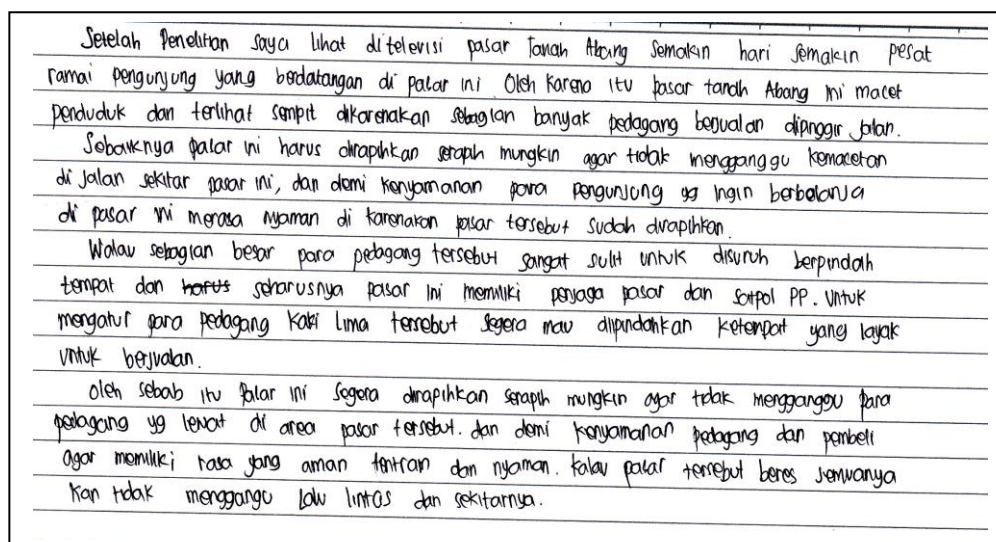 Setelah Penelitian saya lihat ditelevisi pasar Tanah Abang Semakin hari semakin pesat
ramai pengunjung yang berdatangan di pasar ini Oleh Karena itu pasar tanah Abang ini macet
penduduk dan terlihat sempit dikarenakan sebagian banyak pedagang berjualan dipinggir jalan.
Sebaiknya pasar ini harus dirapihkan serapih mungkin agar tidak mengganggu kemacetan
di jalan sekitar pasar ini, dan demi kenyamanan para pengunjung yg ingin berbelanja
di pasar ini merasa nyaman di karenakan pasar tersebut sudah dirapihkan.
Walau sebagian besar para pedagang tersebut sangat sulit untuk disuruh berpindah
tempat dan harus seharusnya pasar ini memiliki penjaga pasar dan satpol PP. Untuk
mengatur para pedagang kaki lima tersebut segera mau dipindahkan ketempat yang layak
untuk berjualan.
Oleh sebab itu pasar ini segera dirapihkan serapih mungkin agar tidak menggangu para
pedagang yg lewat di area pasar tersebut. dan demi kenyamanan pedagang dan pembeli
agar memiliki rasa yang aman tentram dan nyaman. kalau pasar tersebut beres semuanya
Kan tidak menggangu lalu lintas dan sekitarnya.